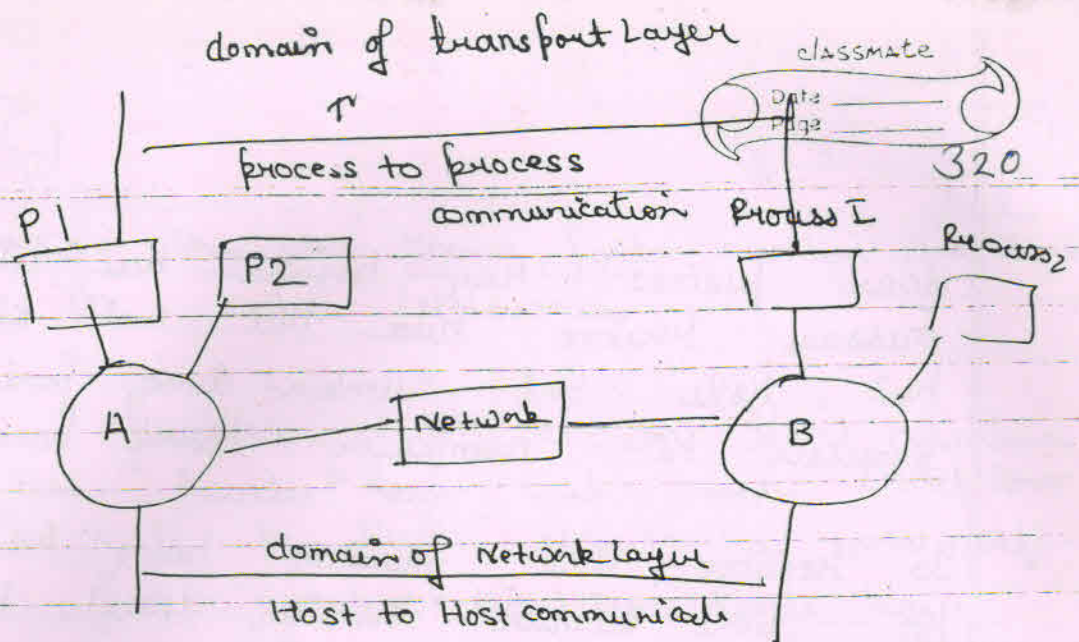 domain of transport Layer
classmate
Date
Page
320
process to process
communication
Process I
Process2
P1
P2
A
Network
B
domain of Network Layer
Host to Host communicati